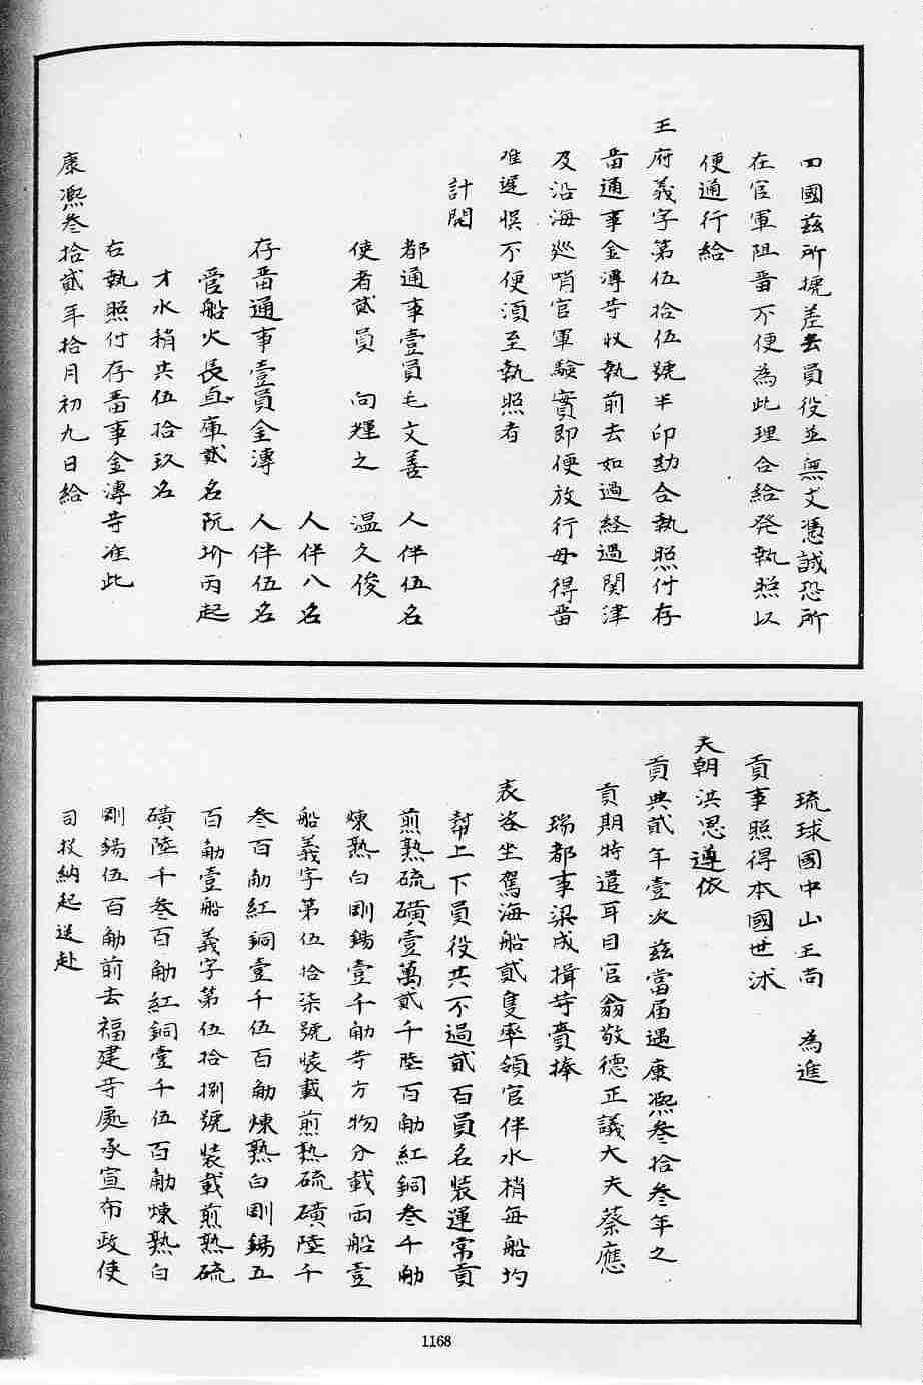 回國茲所據差去員役並無文憑誠恐所
在官軍阻畱不便為此理合給發執照以
便通行給
王府義字第伍拾伍號半印勘合執照付存
畱通事金溥等收執前去如過経過関津
及沿海巡哨官軍驗實即便放行毋得畱
难遲悞不便須至執照者
計開
都通事壹員毛文善 人伴伍名
使者貳員 向輝之 温久俊
人伴八名
存畱通事壹員金溥 人伴伍名
管船火長直庫貳名阮圿丙起
才水稍共伍拾玖名
右執照付存畱事金溥等准此
康熈叁拾貳年拾月初九日給
琉球國中山王尚 為進
貢事照得本國世沐
天朝洪恩遵依
貢典貳年壹次茲當届遇康熈叁拾叁年之
貢期特遣耳目官翁敬德正議大夫蔡應
瑞都事梁成楫等賫捧
表咨坐駕海船貳隻率領官伴水梢每船均
幇上下員役共不過貳百員名装運常貢
煎熟硫磺壹萬貳千陸百觔紅銅叁千觔
煉熟白剛錫壹千觔等方物分載両船壹
船義字第伍拾柒號装載煎熟硫磺陸千
叁百觔紅銅壹千伍百觔煉熟白剛錫五
百觔壹船義字第伍拾捌號装載煎熟硫
磺陸千叁百觔紅銅壹千伍百觔煉熟白
剛錫伍百觔前去福建等處承宣布政使
司投納起送赴
1168